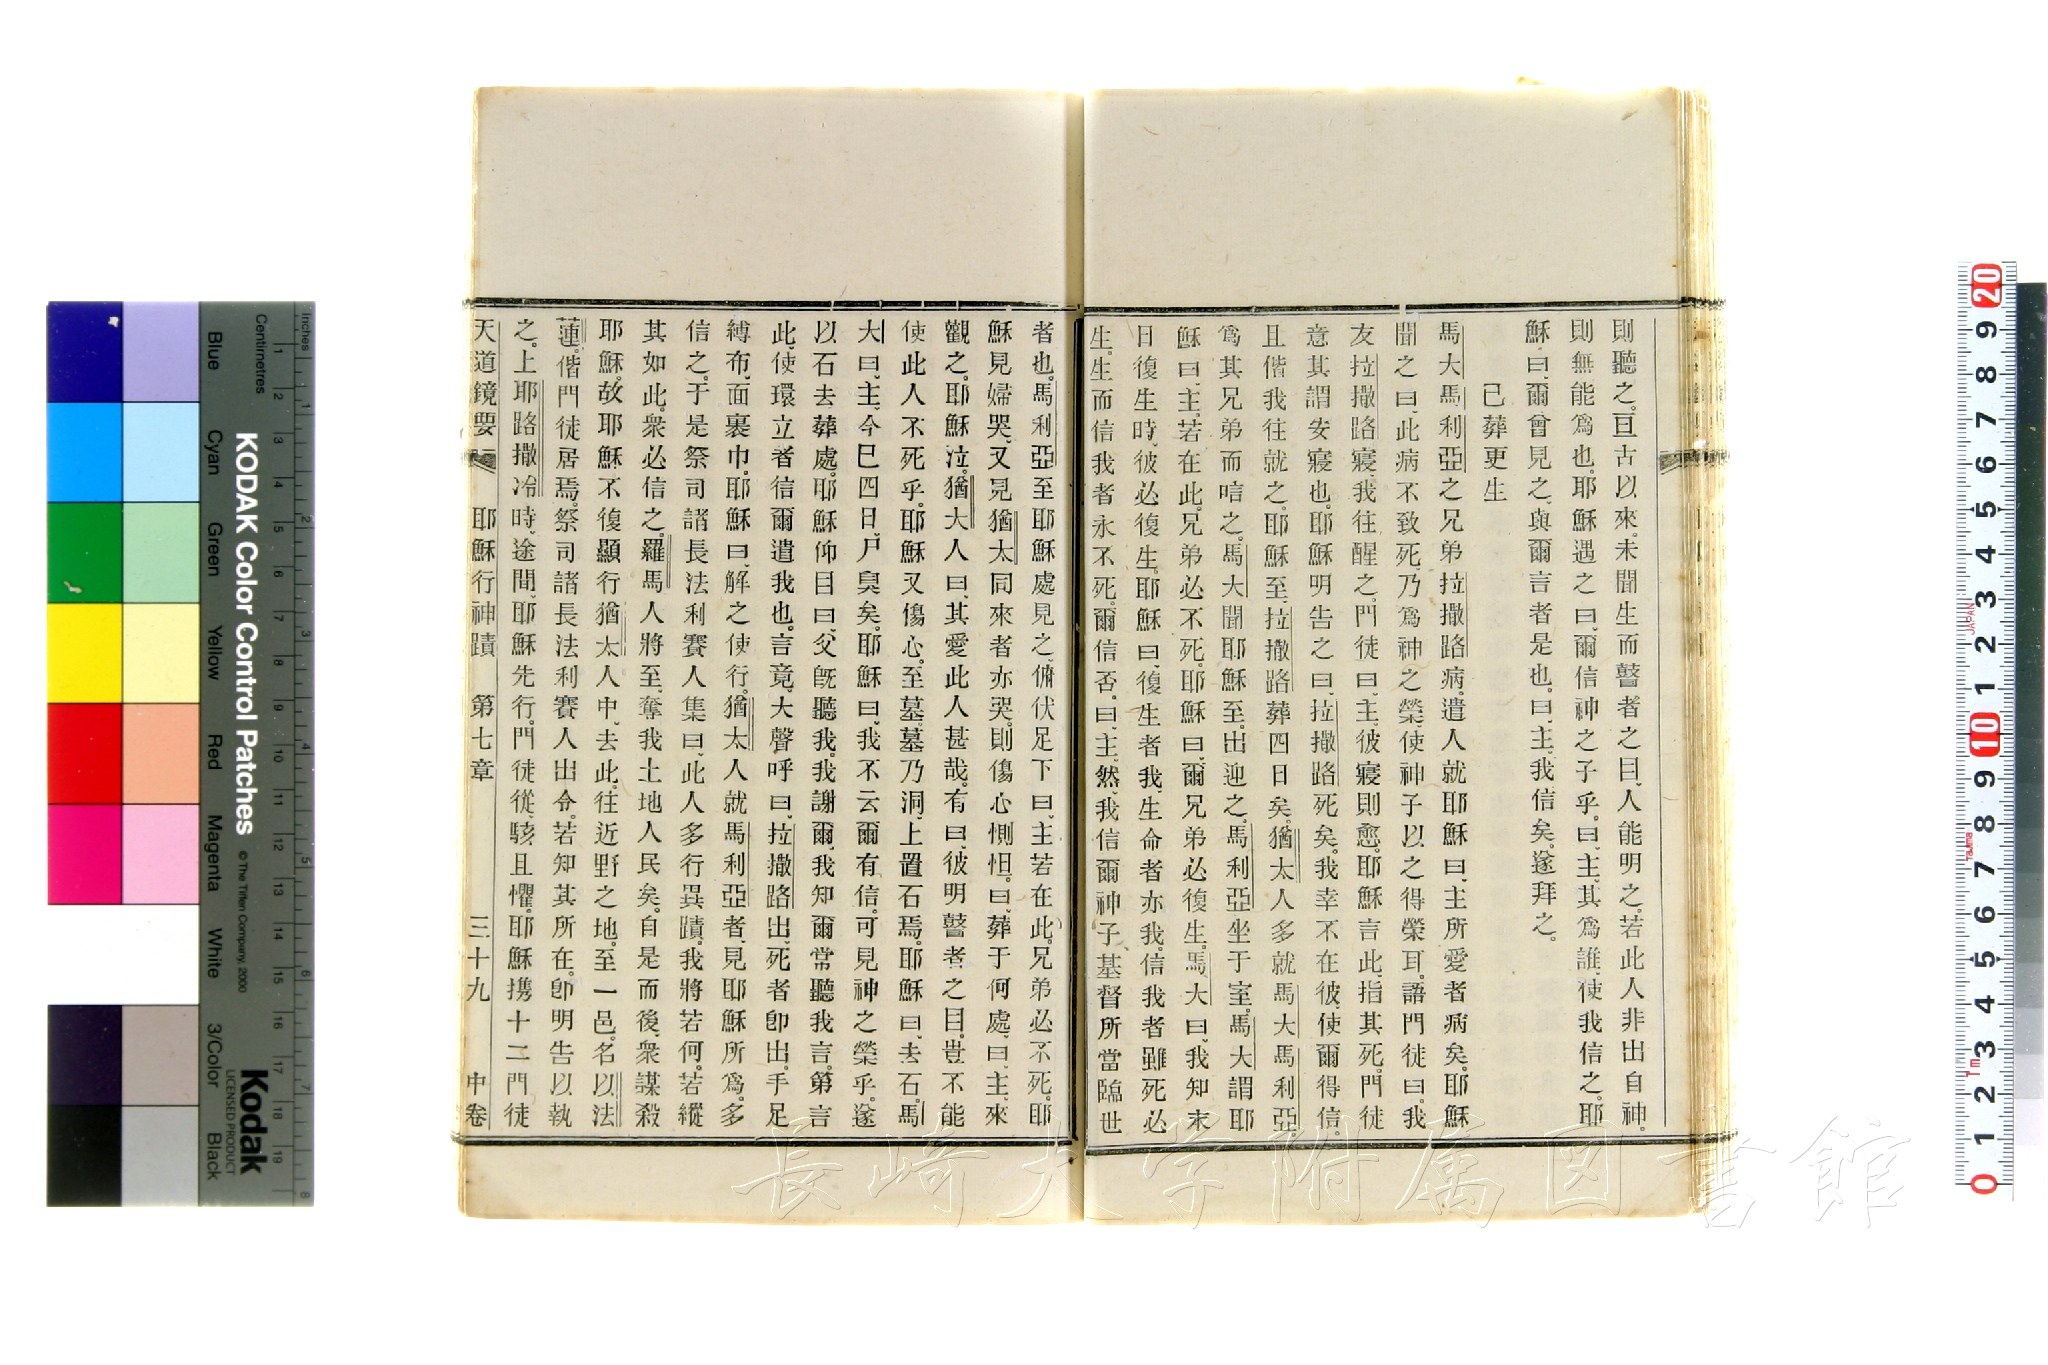 則聽之。亘古以來、未聞生而瞽者之目、人能明之。若此人非出自神。
則無能爲也。耶穌遇之曰、爾信神之子乎。曰、主、其爲誰、使我信之。耶
穌曰、爾曾見之、與爾言者是也。曰、主、我信矣。遂拜之。
已葬更生
馬大馬利亞之兄弟拉撒路病。遣人就耶穌曰、主所愛者病矣。耶穌
聞之曰、此病不致死、乃爲神之榮、使神子以之得榮耳。語門徒曰、我
友拉撒路寢、我往醒之。門徒曰、主、彼寢則愈。耶穌言此、指其死。門徒
意其謂安寢也。耶穌明告之曰、拉撒路死矣。我幸不在彼、使爾得信。
且偕我往就之。耶穌至、拉撒路葬四日矣。猶太人多就馬大馬利亞
爲其兄弟而唁之。馬大聞耶穌至、出迎之。馬利亞坐于室。馬大謂耶
穌曰、主、若在此、兄弟必不死。耶穌曰、爾兄弟必復生。馬大曰、我知末
日復生時、彼必復生。耶穌曰、復生者我、生命者亦我。信我者雖死必
生。生而信我者永不死。爾信否。曰、主、然、我信爾神子基督所當臨世
者也。馬利亞至耶穌處見之、俯伏足下曰、主若在此、兄弟必不死。耶
穌見婦哭、又見猶太同來者亦哭。則傷心惻怛。曰、葬于何處。曰、主、來
觀之。耶穌泣。猶大人曰、其愛此人甚哉。有曰、彼明瞽者之目。豈不能
使此人不死乎。耶穌又傷心。至墓、墓乃洞、上置石焉。耶穌曰、去石。馬
大曰、主、今已四日、尸臭矣。耶穌曰、我不云爾有信、可見神之榮乎。遂
以石去葬處。耶穌仰目曰、父旣聽我、我謝爾、我知爾常聽我言。第言
此、使環立者信爾遣我也。言竟、大聲呼曰、拉撒路出、死者卽出。手足
縛布、面裹巾、耶穌曰、解之使行。猶太人就馬利亞者、見耶穌所爲、多
信之。于是祭司諸長法利賽人集曰、此人多行異蹟。我將若何。若縱
其如此、衆必信之。羅馬人將至、奪我土地人民矣。自是而後、衆謀殺
耶穌。故耶穌不復顯行猶太人中、去此。往近野之地。至一邑。名以法
蓮。偕門徒居焉。祭司諸長法利賽人出令。若知其所在。卽明告以執
之。上耶路撒冷時、途間、耶穌先行。門徒從、駭且懼。耶穌攜十二門徒
天道鏡要 耶穌行神蹟 第七章 三十九 中卷
長崎大学附属図書館
KODAK Color Control Patches
© The Tiffen Company, 2000
Kodak
LICENSED PRODUCT
Blue Cyan Green Yellow Red Magenta White 3/Color Black
Inches 1 2 3 4 5 6 7 8
Centimetres 1 2 3 4 5 6 7 8 9 10 11 12 13 14 15 16 17 18 19
20 9 8 7 6 5 4 3 2 1 10 9 8 7 6 5 4 3 2 1 0
JAPAN
Tajima